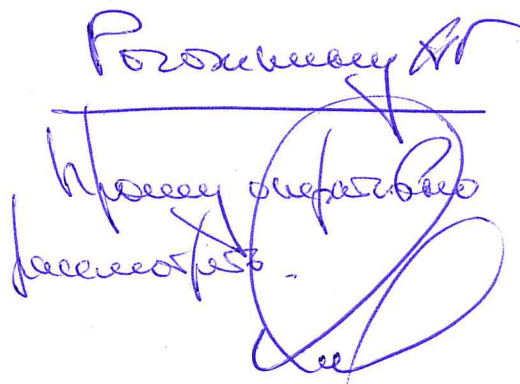 Рогожкину АГ
Прошу оперативно
рассмотреть.